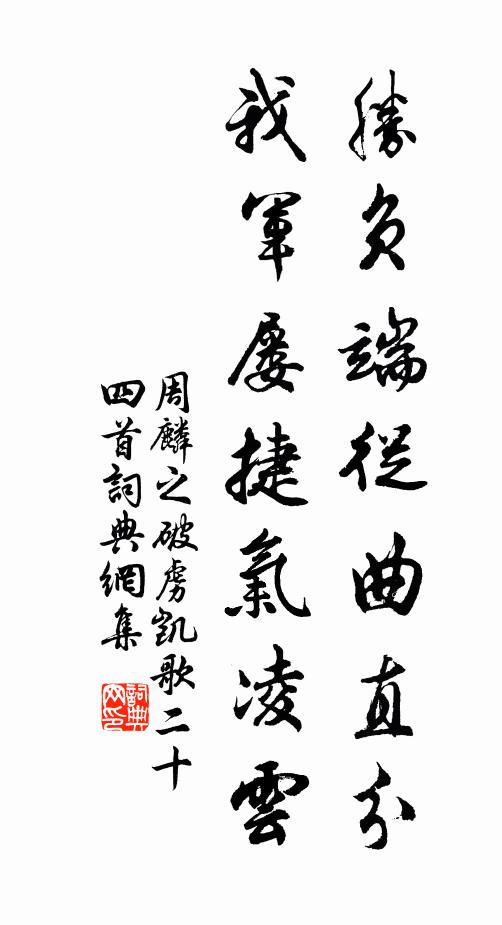 勝負端從曲直分
我軍屢捷氣凌雲
周麟之破虜凱歌二十
四首詞典網集
詞典
网印